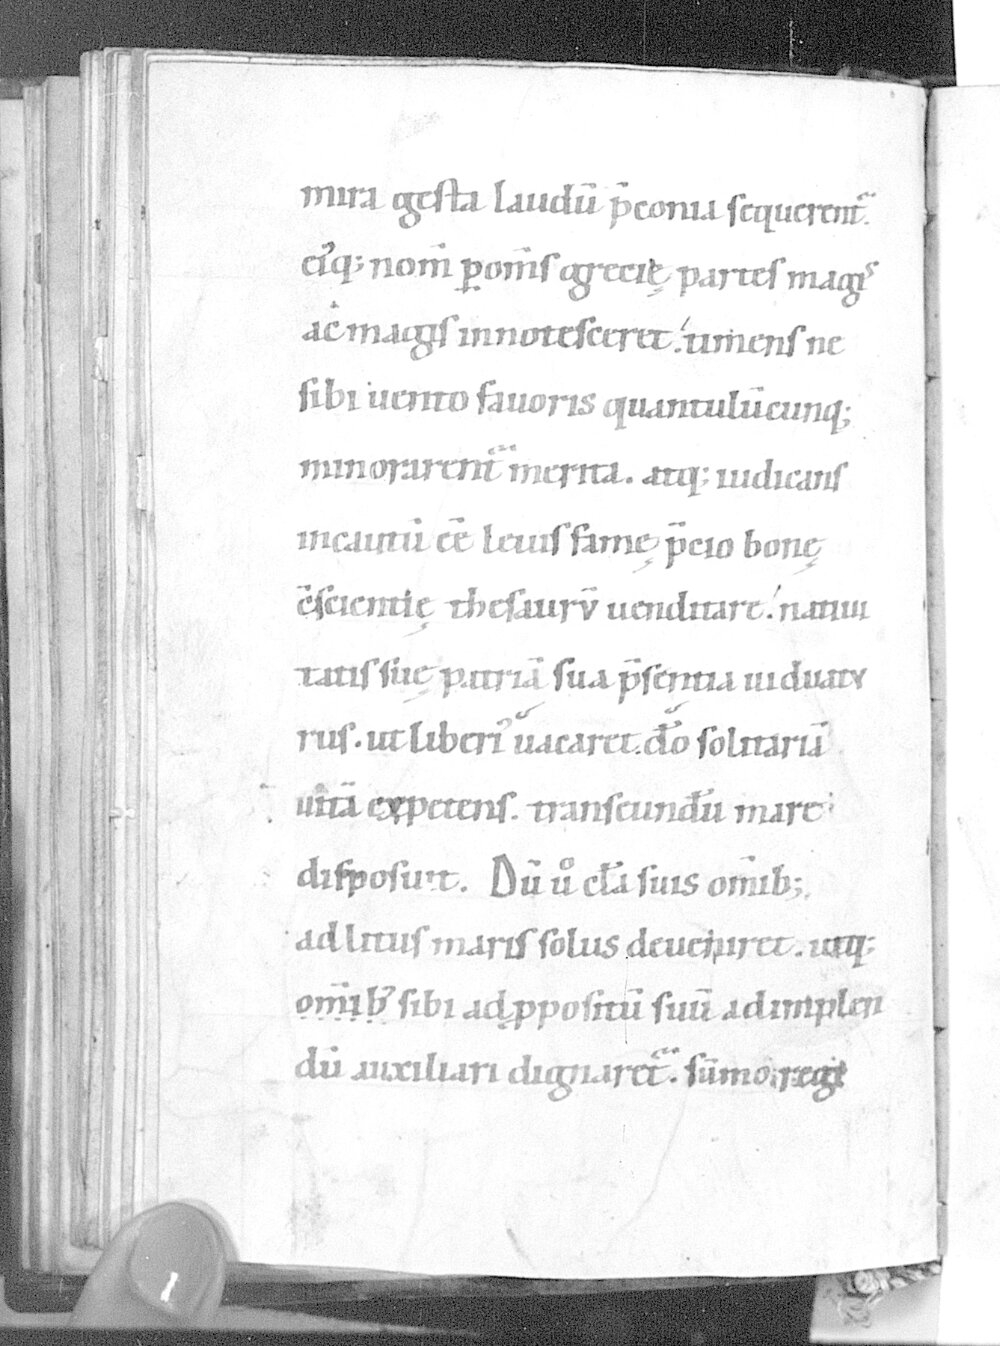 mira gesta laudū p̄conia sequerentᷓ.
ei᷒q; nom̄ ꝑ om̄s grecię partes magis
ac magis innotesceret. timens ne
sibi uento fauoris quantulūcunq;
minorarentᷓ merita. atq; iudicans
incautū eē leuis famę p̄cio bonę
c̄scientię thesaurū uenditare. natiui
tatis suę patriā sua p̄sentia uiduatu
rus. ut liberi᷒ uacaret. do solitariā
uitā expetens. transeundū mare
disposuit. Dū uͦ cl̄a suis om̄ib;
ad litus maris solus deueniret. utq;
om̄ib᷒ sibi ad ꝓpositū suū adimplen
dū auxiliari dignaretᷓ. sūmo regi